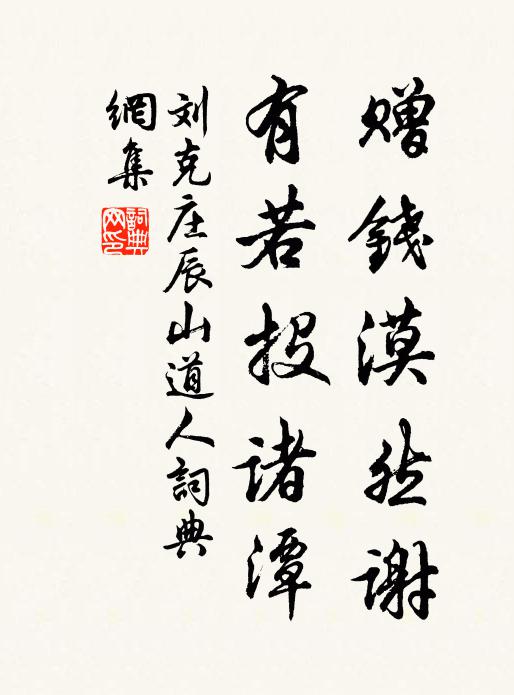 赠錢漠然谢
有若投诸潭
刘克庄辰山道人詞典
網集
詞典網印